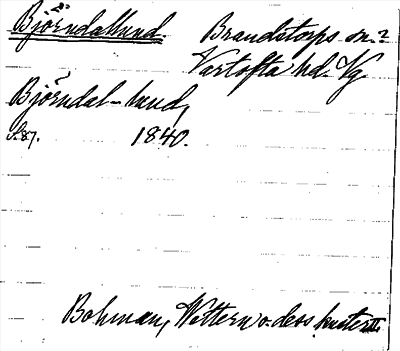 Björndallund. Brandstorps sn.?
Vartofta hd. Vg
Björndal-lund,
S.87. 1840.
Bohman, Wettern o. dess kuster II.